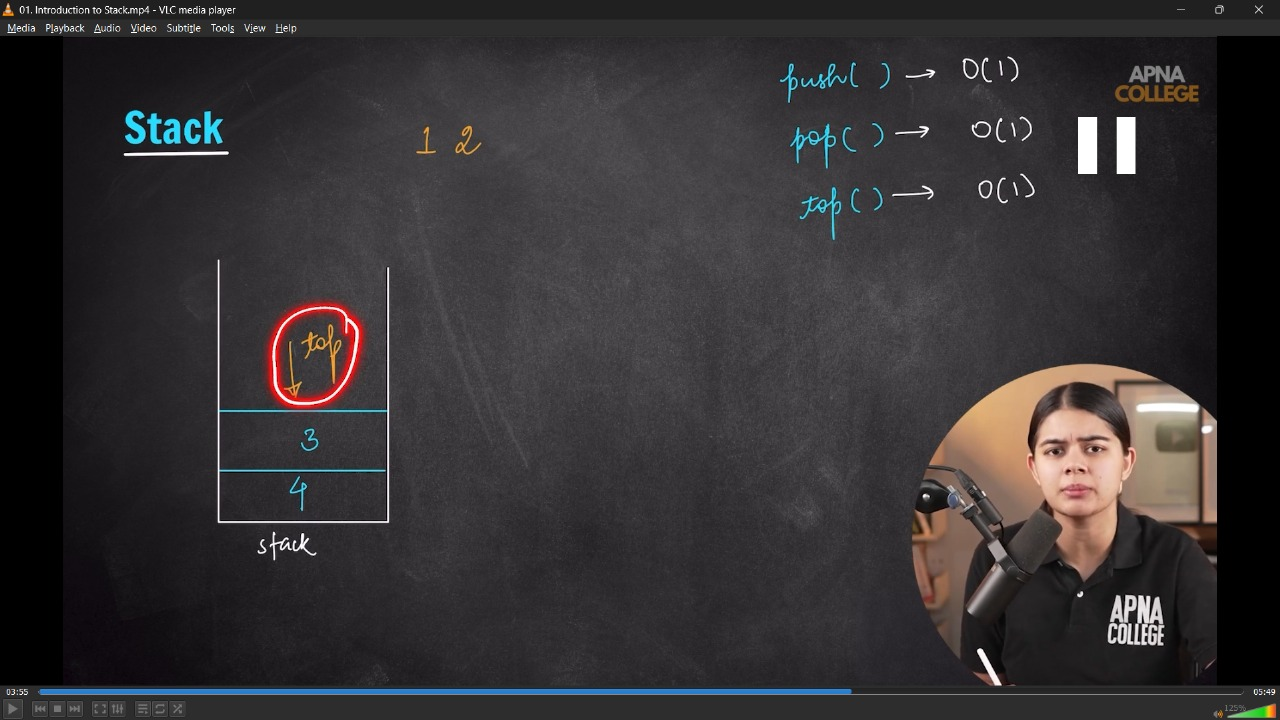 01. Introduction to Stack.mp4 - VLC media player
Media Playback Audio Video Subtitle Tools View Help
push( ) → O(1)
APNA
COLLEGE
Stack
1 2
pop( ) → O(1)
top( ) → O(1)
↓ top
3
4
stack
APNA
COLLEGE
03:55
05:49
125%